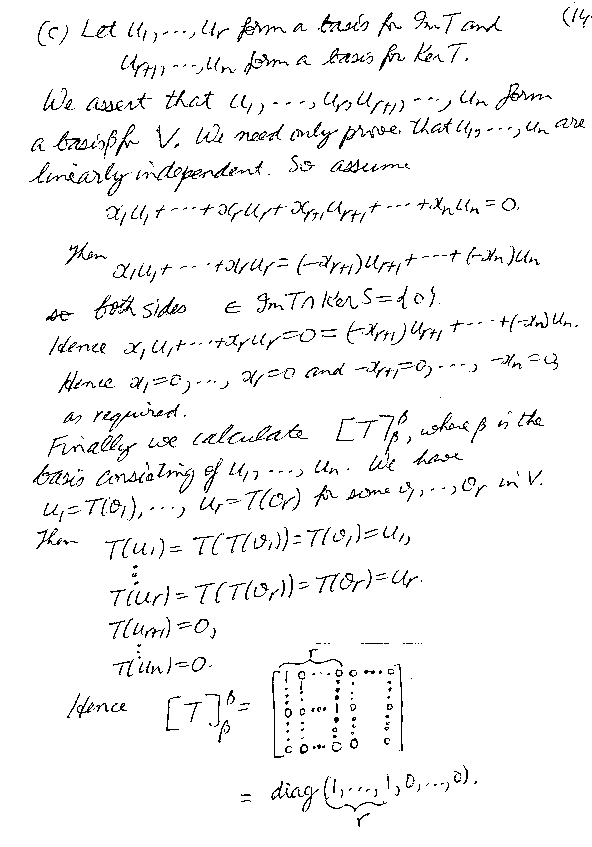 (c) Let u₁, ..., uᵣ form a basis for Im T and (14
uᵣ₊₁, ..., uₙ form a basis for Ker T.
We assert that u₁, ..., uᵣ, uᵣ₊₁, ..., uₙ form
a basis β for V. We need only prove that u₁, ..., uₙ are
linearly independent. So assume
x₁u₁ + ··· + xᵣuᵣ + xᵣ₊₁uᵣ₊₁ + ··· + xₙuₙ = 0.
Then x₁u₁ + ··· + xᵣuᵣ = (-xᵣ₊₁)uᵣ₊₁ + ··· + (-xₙ)uₙ
so both sides ∈ Im T ∩ Ker S = {0}.
Hence x₁u₁ + ··· + xᵣuᵣ = 0 = (-xᵣ₊₁)uᵣ₊₁ + ··· + (-xₙ)uₙ.
Hence x₁ = 0, ..., xᵣ = 0 and -xᵣ₊₁ = 0, ..., -xₙ = 0,
as required.
Finally we calculate [T]ᵝᵦ, where β is the
basis consisting of u₁, ..., uₙ. We have
u₁ = T(v₁), ..., uᵣ = T(vᵣ) for some v₁, ..., vᵣ in V.
Then T(u₁) = T(T(v₁)) = T(v₁) = u₁,
⋮
T(uᵣ) = T(T(vᵣ)) = T(vᵣ) = uᵣ.
T(uᵣ₊₁) = 0,
⋮
T(uₙ) = 0.
r
Hence [T]ᵝᵦ = [1 0 ··· 0 0 ··· 0
⋮ ⋮ ⋮ ⋮ ⋮
0 0 ··· 1 0 0
⋮ ⋮ ⋮ ⋮ ⋮
0 0 ··· 0 0 0]
= diag(1, ..., 1, 0, ..., 0).
r